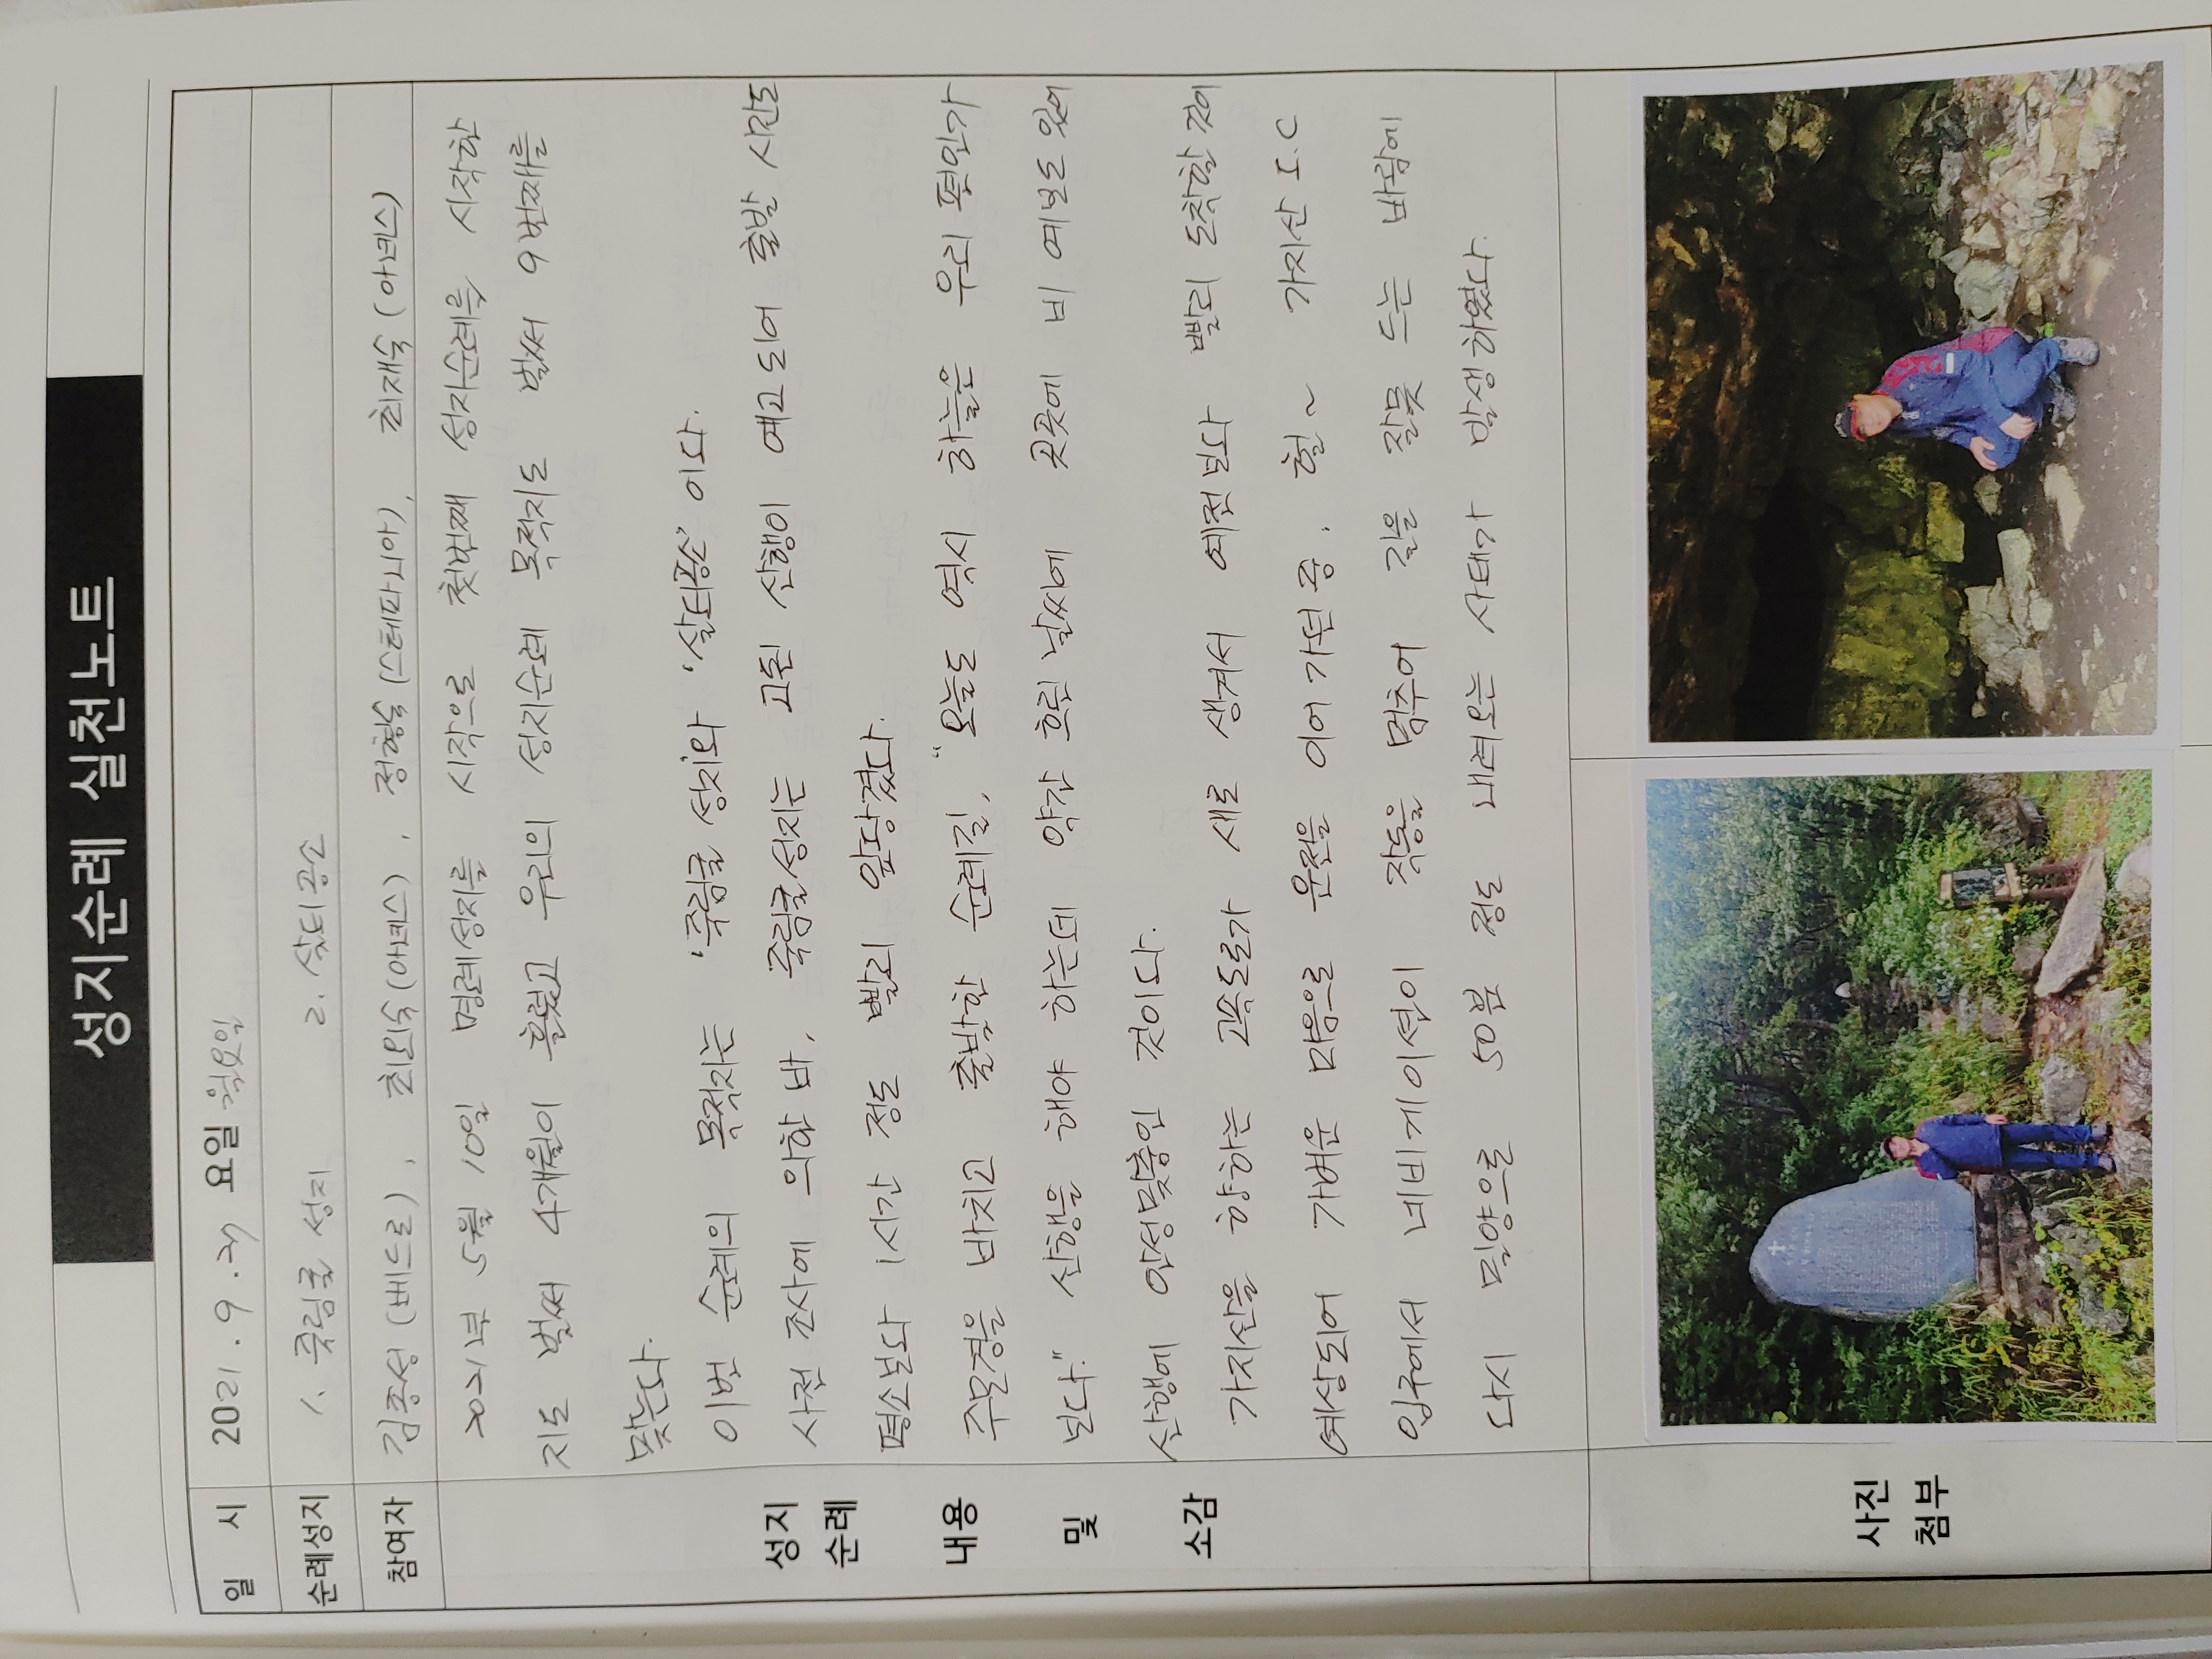 성지순례 실천노트
일 시 2021.9.27 요요일 월요일
순례성지 1. 죽림굴 성지 2. 살티공소
참여자 김종성(베드로), 최외숙(아녜스), 정형숙(스테파니아), 최재숙(아녜스)
2021년 5월 10일 명례성지를 시작으로 첫번째 성지순례를 시작한
지도 벌써 4개월이 흘렀고 우리의 성지순례 목적지도 벌써 9번째를
맞는다.
이번 순례의 목적지는 '죽림굴 성지'와 '살티공소' 이다.
사전 조사에 의한 바, 죽림굴성지는 고된 산행이 예고되어 출발 시간도
평소보다 1시간 정도 빨리 앞당겼다.
주모경을 바치고 출발한 순례길, "오늘도 역시 하늘은 우리 편인가
보다." 산행을 해야 하는데 약간 흐린 날씨에 곳곳에 비 예보도 있어
산행에 안성맞춤인 것이다.
가지산을 향하는 고속도로가 새로 생겨서 예전보다 빨리 도착할 것이
예상되어 가벼운 마음으로 운전을 이어 가던 중, 헐~ 가지산 I.C
입구에서 네비게이션이 작동을 멈추어 길을 잘못 드는 바람에
다시 밀양으로 50분 정도 내려오는 사태가 발생하였다.
성지
순례
내용
및
소감
사진
첨부